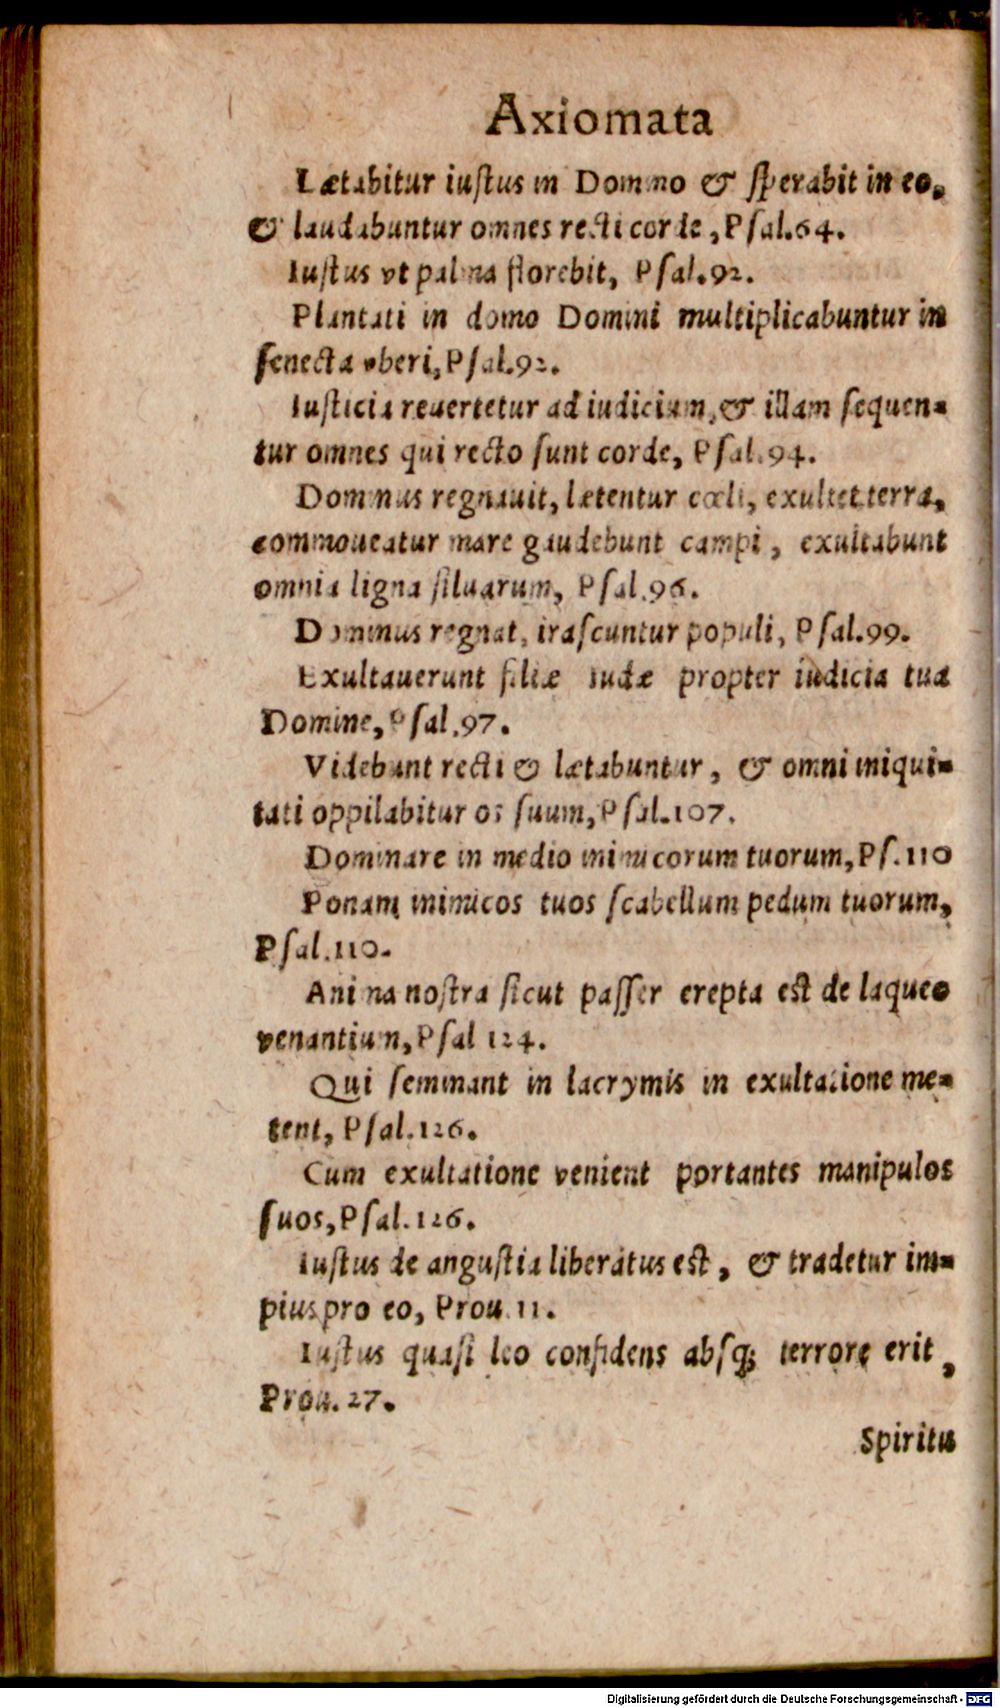 Axiomata
Lætabitur iustus in Domino & sperabit in eo,
& laudabuntur omnes recti corde, Psal.64.
Iustus vt palma florebit, Psal.92.
Plantati in domo Domini multiplicabuntur in
senecta vberi, Psal.92.
Iusticia reuertetur ad iudicium, & illam sequen-
tur omnes qui recto sunt corde, Psal.94.
Dominus regnauit, lætentur cœli, exultet terra,
commoueatur mare gaudebunt campi, exultabunt
omnia ligna siluarum, Psal.96.
Dominus regnat, irascuntur populi, Psal.99.
Exultauerunt filiæ Iudæ propter iudicia tua
Domine, Psal.97.
Videbunt recti & lætabuntur, & omni iniqui-
tati oppilabitur os suum, Psal.107.
Dominare in medio inimicorum tuorum, Ps.110
Ponam inimicos tuos scabellum pedum tuorum,
Psal.110.
Anima nostra sicut passer erepta est de laqueo
venantium, Psal 124.
Qui seminant in lacrymis in exultatione me-
tent, Psal.126.
Cum exultatione venient portantes manipulos
suos, Psal.126.
Iustus de angustia liberatus est, & tradetur im-
pius pro eo, Prou.11.
Iustus quasi leo confidens absq; terrore erit,
Prou.27.
Spiritu
Digitalisierung gefördert durch die Deutsche Forschungsgemeinschaft - DFG